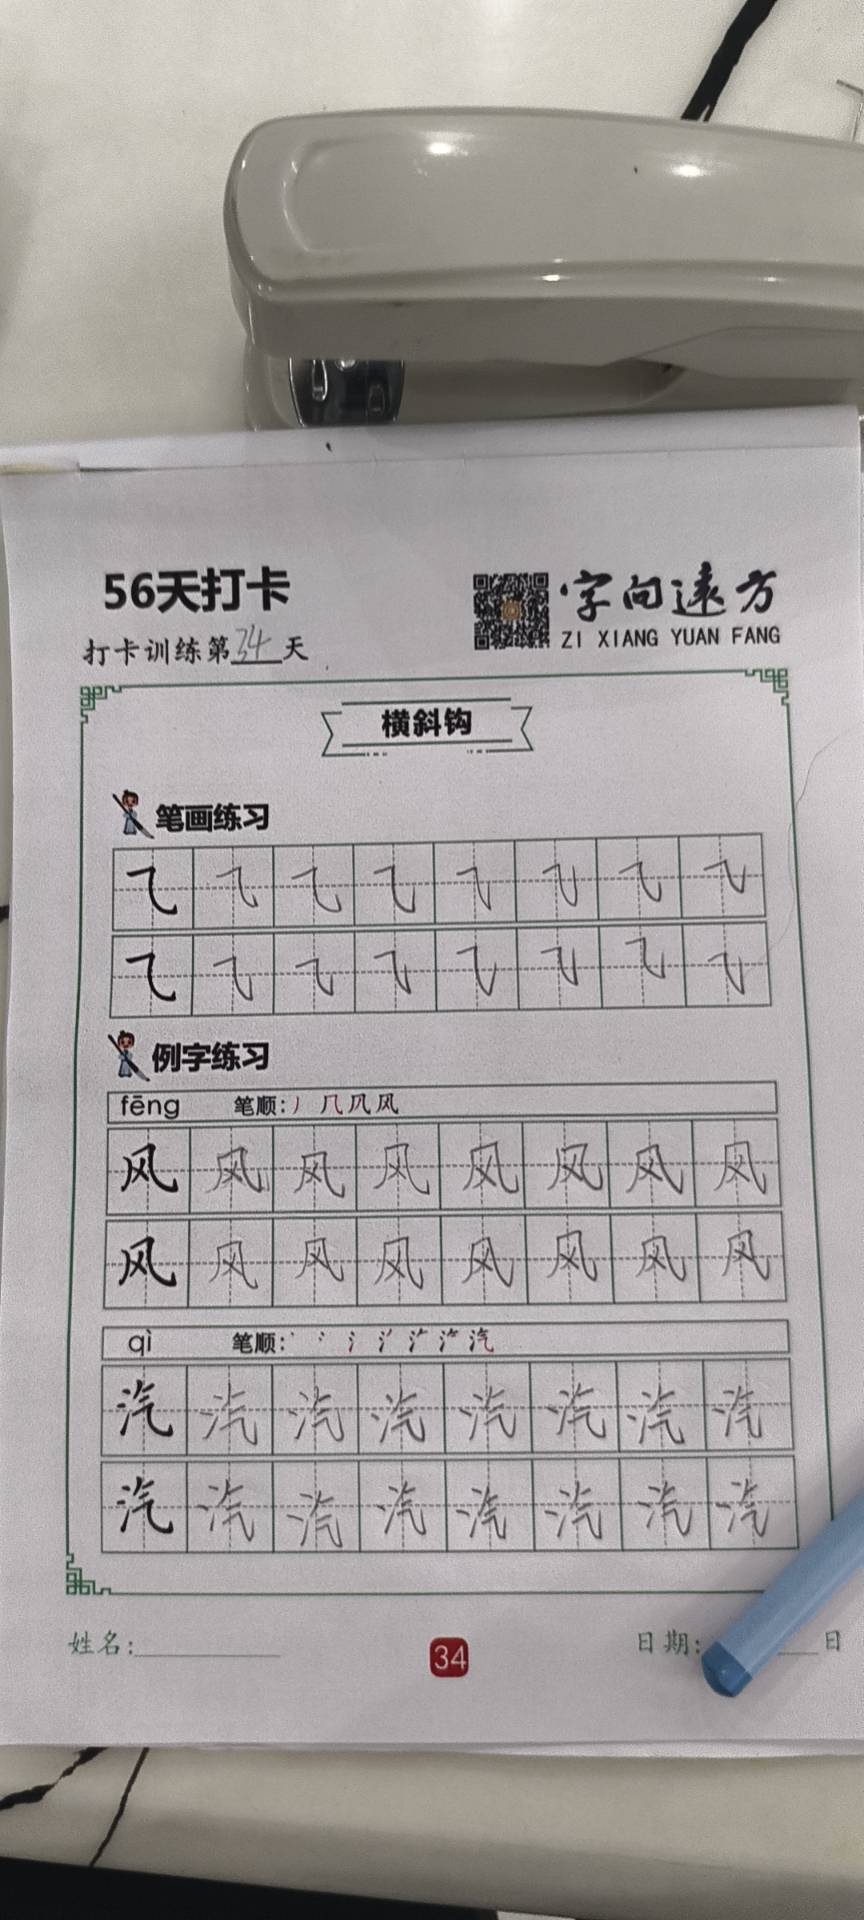 56天打卡
字向远方
ZI XIANG YUAN FANG
打卡训练第34天
横斜钩
笔画练习
⺄ ⺄ ⺄ ⺄ ⺄ ⺄ ⺄ ⺄
⺄ ⺄ ⺄ ⺄ ⺄ ⺄ ⺄ ⺄
例字练习
fēng 笔顺:
风 风 风 风 风 风 风 风
风 风 风 风 风 风 风 风
qì 笔顺:
汽 汽 汽 汽 汽 汽 汽 汽
汽 汽 汽 汽 汽 汽 汽 汽
姓名: 34 日期: 日